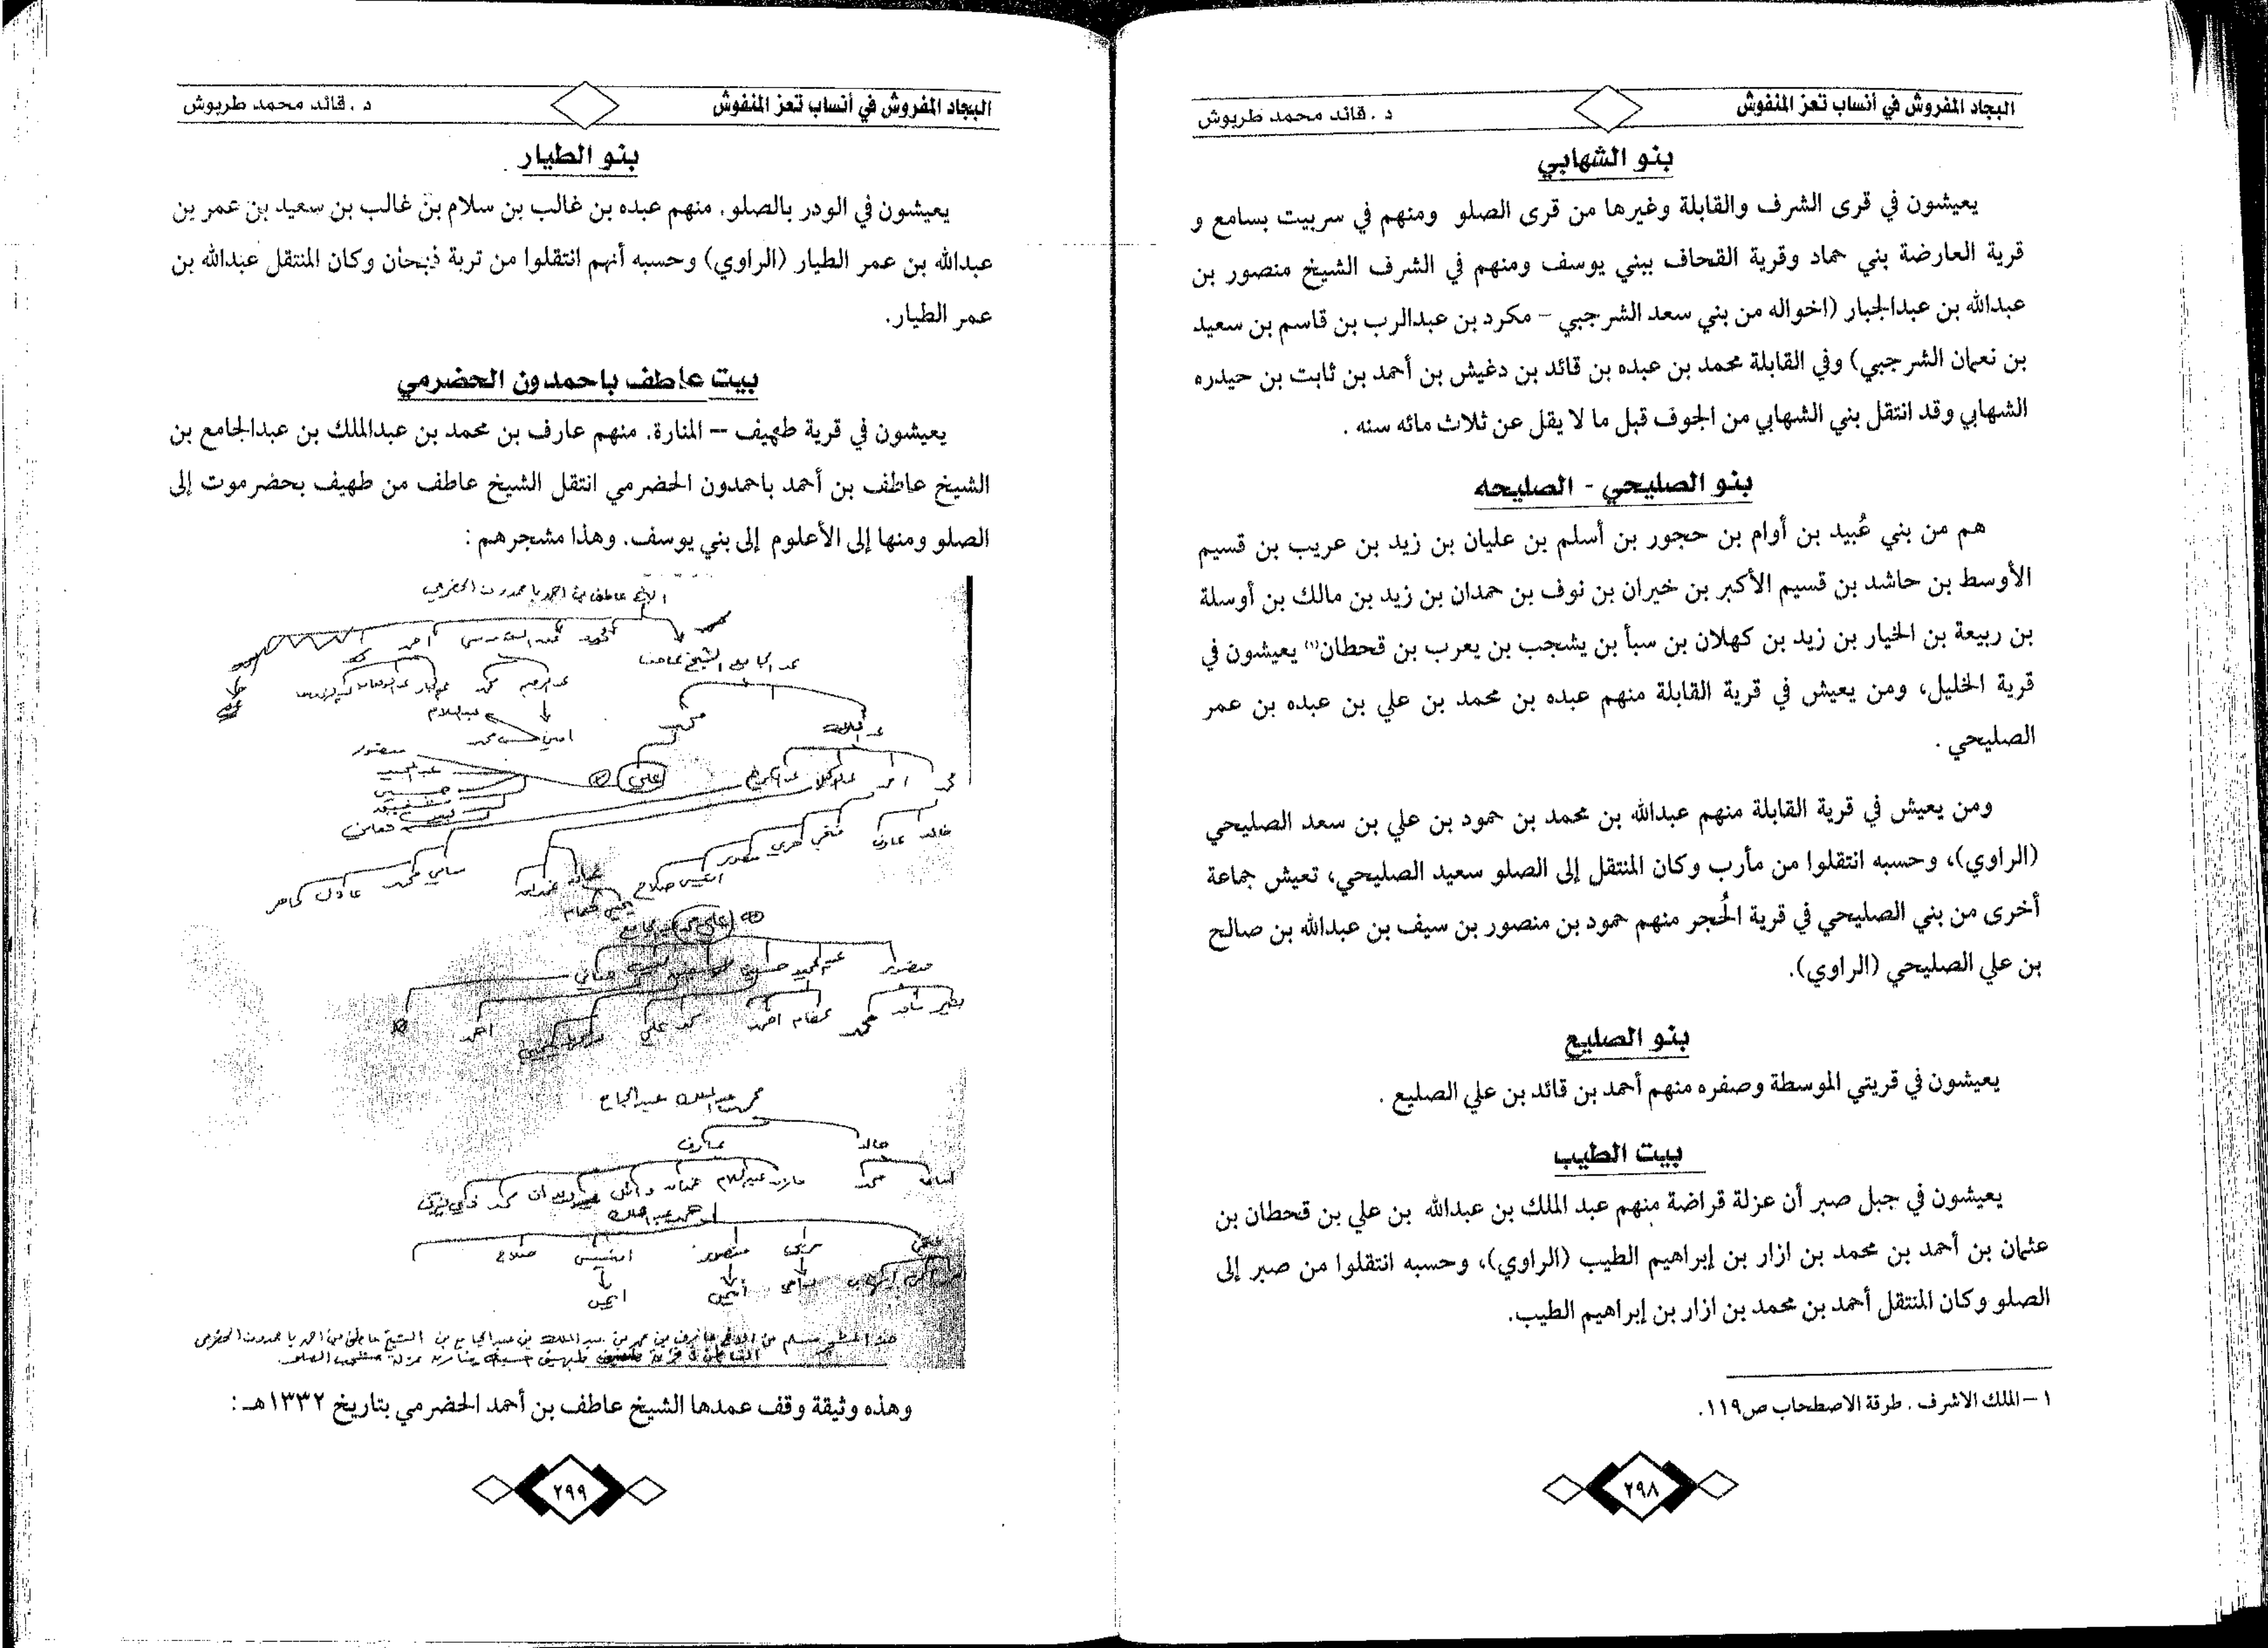 البجاد المفروش في أنساب تعز المنفوش
د . قائد محمد طربوش
بنو الشهابي
يعيشون في قرى الشرف والقابلة وغيرها من قرى الصلو ومنهم في سربيت بسامع و
قرية العارضة بني حماد وقرية القحاف ببني يوسف ومنهم في الشرف الشيخ منصور بن
عبدالله بن عبدالجبار (اخواله من بني سعد الشرجبي – مكرد بن عبدالرب بن قاسم بن سعيد
بن نعمان الشرجبي) وفي القابلة محمد بن عبده بن قائد بن دغيش بن أحمد بن ثابت بن حيدره
الشهابي وقد انتقل بني الشهابي من الجوف قبل ما لا يقل عن ثلاث مائه سنه .
بنو الصليحي - الصليحه
هم من بني عُبيد بن أوام بن حجور بن أسلم بن عليان بن زيد بن عريب بن قسيم
الأوسط بن حاشد بن قسيم الأكبر بن خيران بن نوف بن حمدان بن زيد بن مالك بن أوسلة
بن ربيعة بن الخيار بن زيد بن كهلان بن سبأ بن يشجب بن يعرب بن قحطان(١) يعيشون في
قرية الخليل، ومن يعيش في قرية القابلة منهم عبده بن محمد بن علي بن عبده بن عمر
الصليحي .
ومن يعيش في قرية القابلة منهم عبدالله بن محمد بن حمود بن علي بن سعد الصليحي
(الراوي)، وحسبه انتقلوا من مأرب وكان المنتقل إلى الصلو سعيد الصليحي، تعيش جماعة
أخرى من بني الصليحي في قرية الحُجر منهم حمود بن منصور بن سيف بن عبدالله بن صالح
بن علي الصليحي (الراوي).
بنو الصليع
يعيشون في قريتي الموسطة وصفره منهم أحمد بن قائد بن علي الصليع .
بيت الطيب
يعيشون في جبل صبر أن عزلة قراضة منهم عبد الملك بن عبدالله بن علي بن قحطان بن
عثمان بن أحمد بن محمد بن ازار بن إبراهيم الطيب (الراوي)، وحسبه انتقلوا من صبر إلى
الصلو وكان المنتقل أحمد بن محمد بن ازار بن إبراهيم الطيب.
١ – الملك الاشرف . طرقة الاصطحاب ص١١٩.
٢٩٨
البجاد المفروش في أنساب تعز المنفوش
د . قائد محمد طربوش
بنو الطيار
يعيشون في الودر بالصلو. منهم عبده بن غالب بن سلام بن غالب بن سعيد بن عمر بن
عبدالله بن عمر الطيار (الراوي) وحسبه أنهم انتقلوا من تربة ذبحان وكان المنتقل عبدالله بن
عمر الطيار.
بيت عاطف باحمدون الحضرمي
يعيشون في قرية طهيف – المنارة. منهم عارف بن محمد بن عبدالملك بن عبدالجامع بن
الشيخ عاطف بن أحمد باحمدون الحضرمي انتقل الشيخ عاطف من طهيف بحضرموت إلى
الصلو ومنها إلى الأعلوم إلى بني يوسف. وهذا مشجرهم :
الشيخ عاطف بن احمد با حمدون الحضرمي
محمد
احمد
عبد الجامع الشيخ عاطف
عبدالرحيم محمد
عبدالسلام
محمد
عبدالملك
منصور
علي
محمد احمد
خالد عارف
سامي محمد عادل
منصور
احمد
محمد علي
محمد عبدالملك عبدالجامع
خالد
عارف
محمد
مازن عبدالسلام
احمد عبدالملك
منصور
صلاح
وهذه وثيقة وقف عمدها الشيخ عاطف بن أحمد الحضرمي بتاريخ ١٣٣٢هـ :
٢٩٩